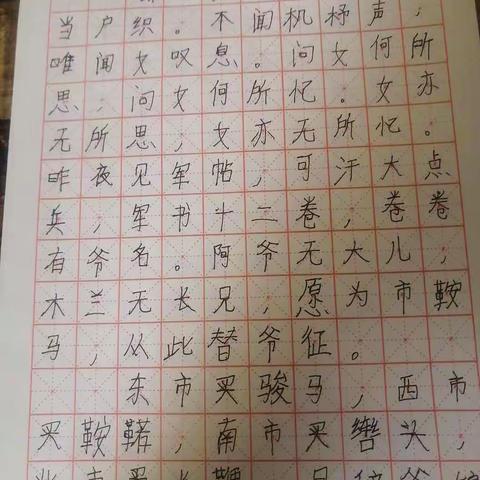 当户织。不闻机杼声，
唯闻女叹息。问女何所
思，问女何所忆。女亦
无所思，女亦无所忆。
昨夜见军帖，可汗大点
兵，军书十二卷，卷卷
有爷名。阿爷无大儿，
木兰无长兄，愿为市鞍
马，从此替爷征。
东市买骏马，西市
买鞍鞯，南市买辔头，